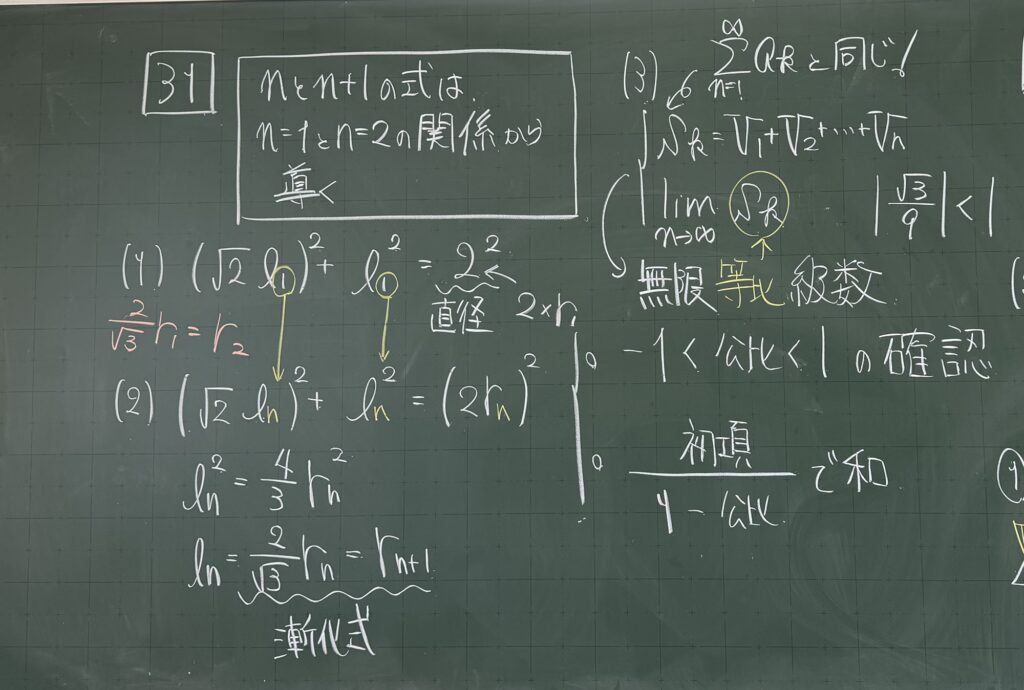 31
nとn+1の式は
n=1とn=2の関係から
導く
(1) (√2 l₁)² + l₁² = 2²
直径 2×r₁
2/√3 r₁ = r₂
(2) (√2 lₙ)² + lₙ² = (2rₙ)²
lₙ² = 4/3 rₙ²
lₙ = 2/√3 rₙ = rₙ₊₁
漸化式
(3) ∞Σn=1 akと同じ!
Sk = V₁+V₂+…+Vₙ
lim n→∞ Sk
|√3/9| < 1
無限等比級数
-1 < 公比 < 1 の確認
初項/1-公比 で和